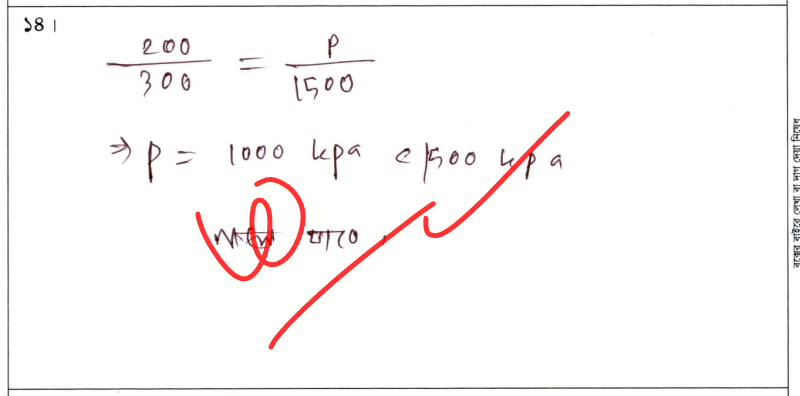 ১৪।
200/300 = P/1500
⇒ P = 1000 kpa < 1500 kpa
যাবে
বক্সের বাইরে লেখা বা দাগ দেয়া নিষেধ